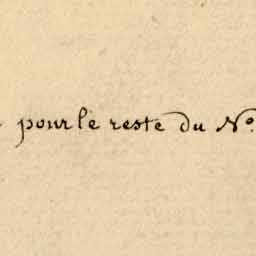 pour le reste du N°.